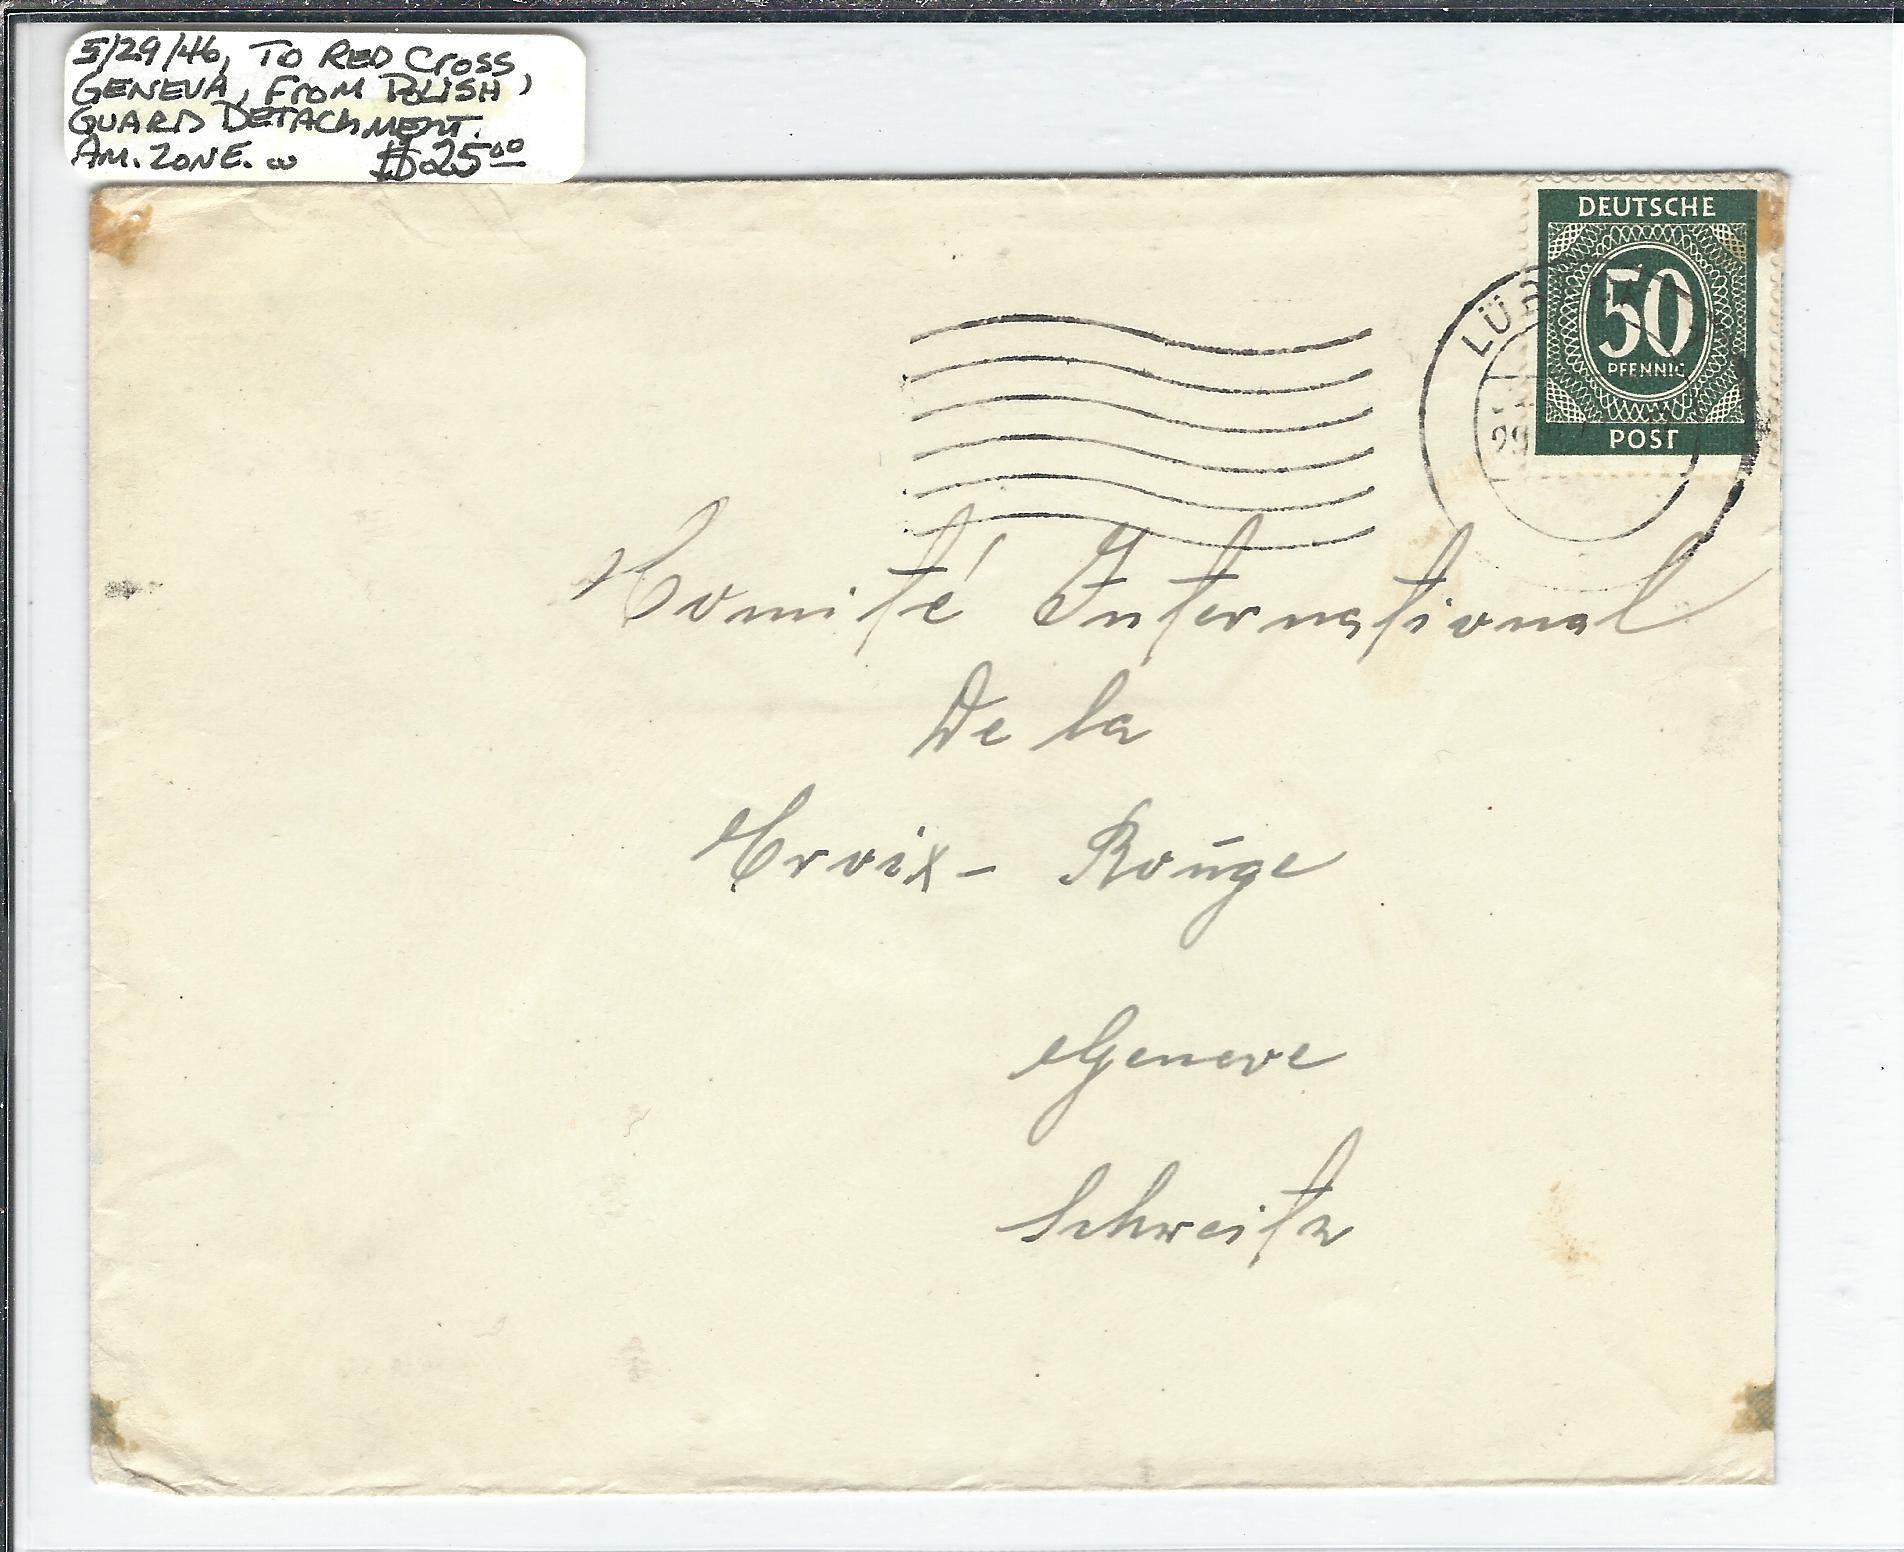 5/29/46, TO RED CROSS,
GENEVA, FROM POLISH
GUARD DETACHMENT.
AM. ZONE. $25.00
DEUTSCHE
50
PFENNIG
POST
LÜB
29
Comité International
De la
Croix- Roūge
Geneve
Schweitz